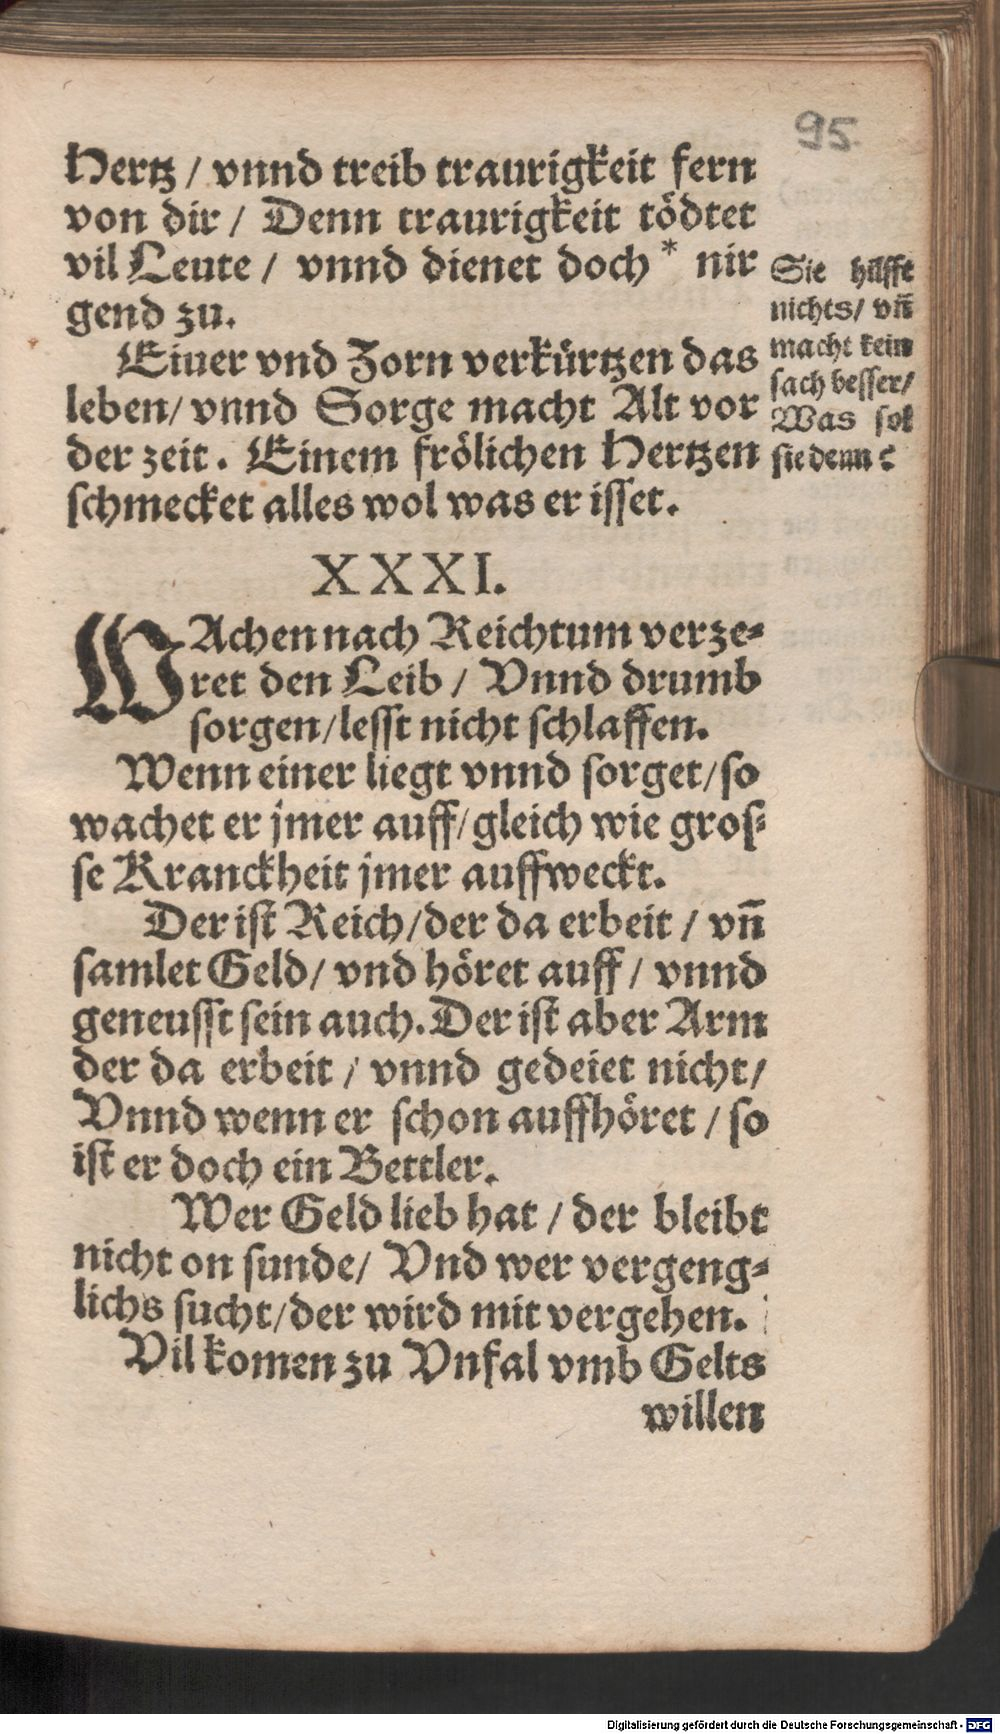 95
Hertz / vnnd treib traurigkeit fern
von dir / Denn traurigkeit tödtet
vil Leute / vnnd dienet doch * nir
gend zu.
Eiuer vnd Zorn verkürtzen das
leben/ vnnd Sorge macht Alt vor
der zeit. Einem frölichen Hertzen
schmecket alles wol was er isset.
Sie hilfft
nichts/ vn̄
macht kein
sach besser/
Was sol
sie denn?
XXXI.
WAchen nach Reichtum verze-
ret den Leib / Vnnd drumb
sorgen/lesst nicht schlaffen.
Wenn einer liegt vnnd sorget/so
wachet er jmer auff/gleich wie gros-
se Kranckheit jmer auffweckt.
Der ist Reich/der da erbeit / vn̄
samlet Geld/ vnd höret auff / vnnd
geneusst sein auch. Der ist aber Arm
der da erbeit / vnnd gedeiet nicht/
Vnnd wenn er schon auffhöret / so
ist er doch ein Bettler.
Wer Geld lieb hat / der bleibt
nicht on sunde/ Vnd wer vergeng-
lichs sucht/der wird mit vergehen.
Vil komen zu Vnfal vmb Gelts
willen
Digitalisierung gefördert durch die Deutsche Forschungsgemeinschaft - DFG